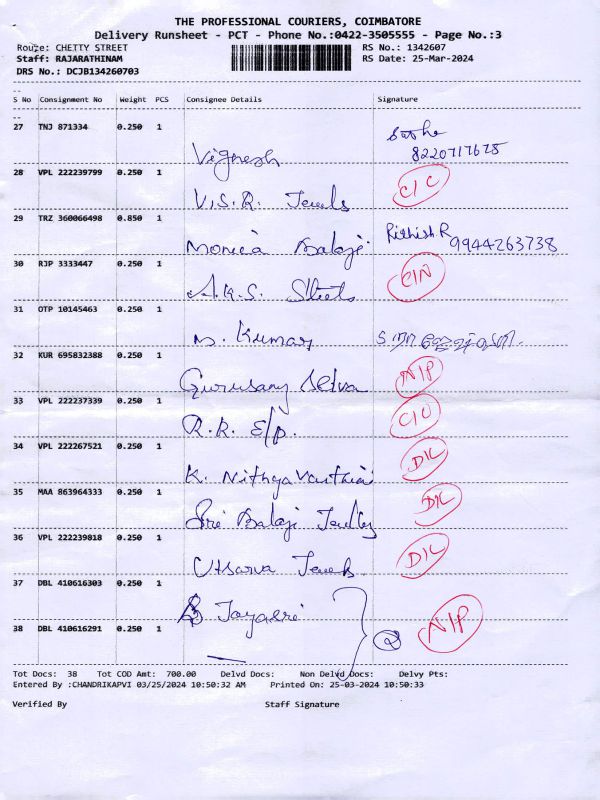 THE PROFESSIONAL COURIERS, COIMBATORE
Delivery Runsheet - PCT - Phone No.:0422-3505555 - Page No.:3
Route: CHETTY STREET RS No.: 1342607
Staff: RAJARATHINAM RS Date: 25-Mar-2024
DRS No.: DCJB134260703
S No Consignment No Weight PCS Consignee Details Signature
27 TNJ 871334 0.250 1 Vignesh 8220717678
28 VPL 222239799 0.250 1 V.S.R. Jewels C/C
29 TRZ 360066498 0.850 1 Monica Balaji Rithish R 9944263738
30 RJP 3333447 0.250 1 A.K.S. Steels C/N
31 OTP 10145463 0.250 1 N. Kumar
32 KUR 695832388 0.250 1 Gurusamy Selva N/P
33 VPL 222237339 0.250 1 R.R. E/p.
34 VPL 222267521 0.250 1 K. Nithya D/L
35 MAA 863964333 0.250 1 Sri Balaji D/L
36 VPL 222239818 0.250 1 Utsarva D/L
37 DBL 410616303 0.250 1 Jayasri
38 DBL 410616291 0.250 1 2 N/P
Tot Docs: 38 Tot COD Amt: 700.00 Delvd Docs: Non Delvd Docs: Delvy Pts:
Entered By :CHANDRIKAPVI 03/25/2024 10:50:32 AM Printed On: 25-03-2024 10:50:33
Verified By Staff Signature